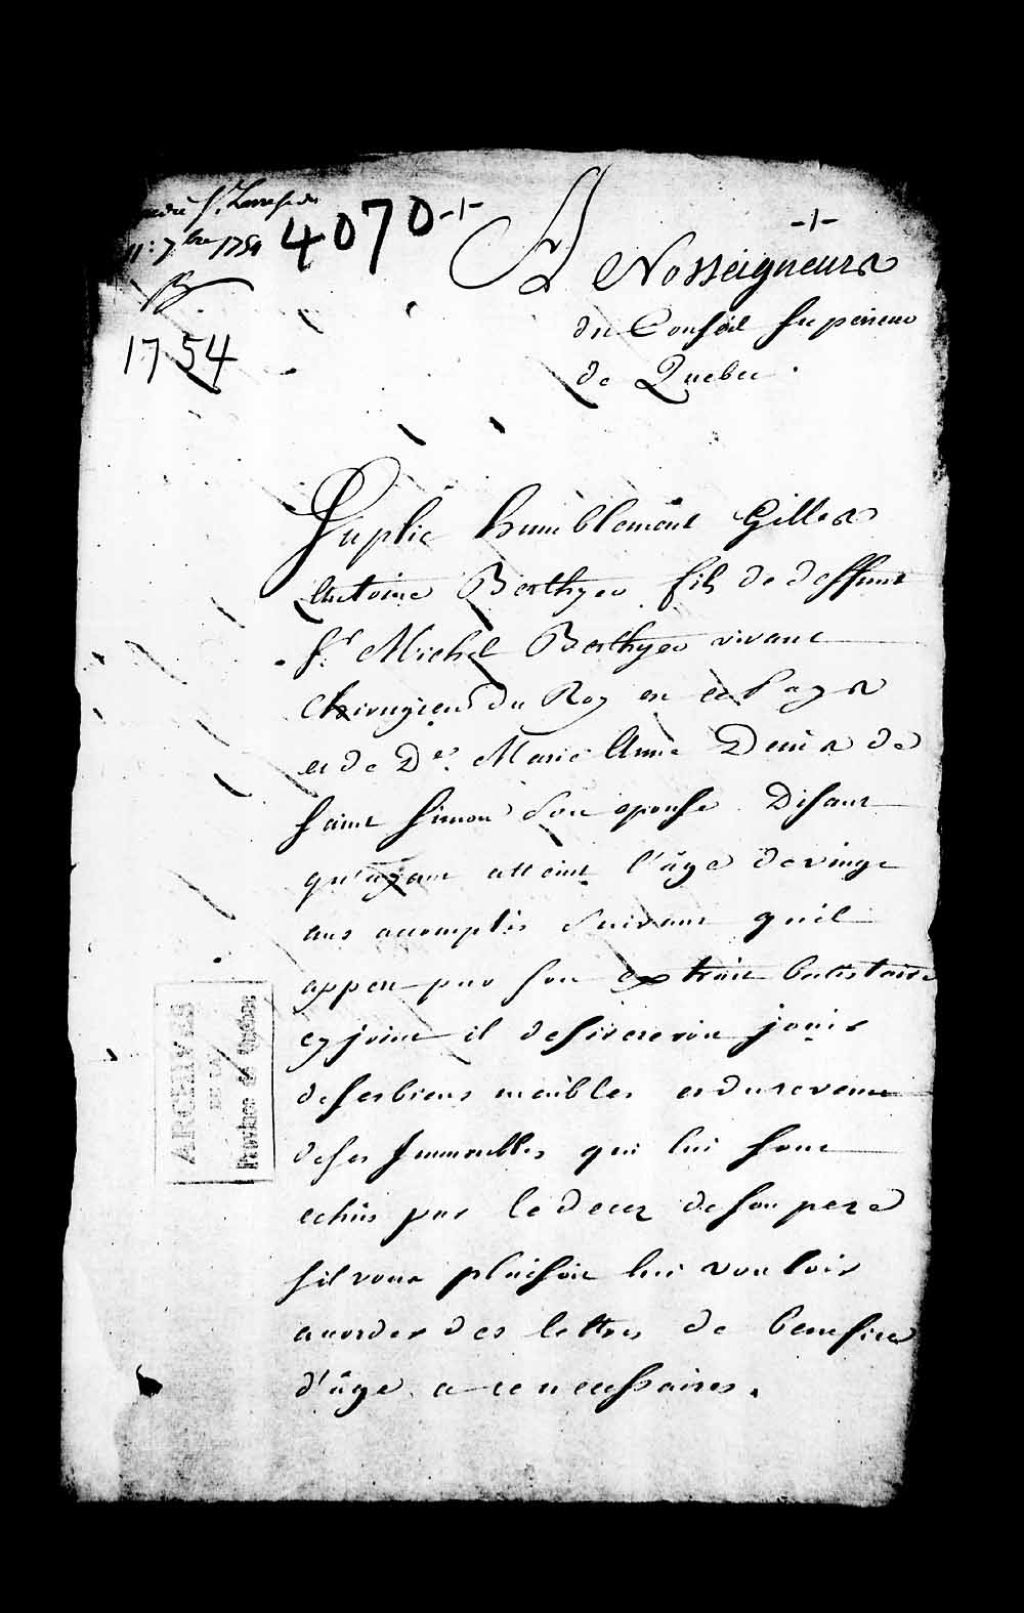 4070
11: 7bre 1754
1754
A Nosseigneurs
du Conseil Superieur
de Quebec.
Suplie humblement Gilles
Antoine Berthyer fils de deffunt
Sr Michel Berthyer vivant
Chirurgien du Roy en ce Pays
et de De. Marie Anne Denis de
Saint Simon Son epouse Disant
qu'ayant atteint l'âge de vingt
ans accomplis Suivant quil
appert par son extrait batistaire
cy joint il desireroit jouir
de ses biens meubles et du revenu
de ses Immeubles qui lui sont
echûs par le decez de son pere
sil vous plaisoit lui vouloir
accorder des lettres de benefice
d'âge a ce necessaires.
ARCHIVES
DE LA
Province de Québec